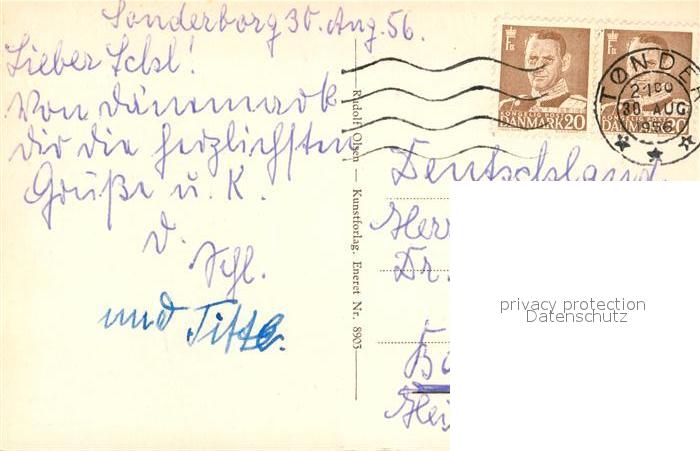 Sonderborg 30. Aug. 56.
Lieber Schl!
Von Dänemark
dir die herzlichsten
Grüße u. K.
d.
Schl.
und Titte.
Rudolf Olsen — Kunstforlag. Eneret Nr. 8903
DANMARK 20
DANMARK 20
TØNDER
30 AUG
1956
Deutschland.
Herr
Dr.
privacy protection
Datenschutz